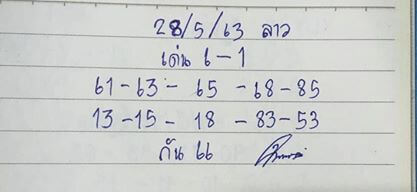 28/5/63 ลาว
เด่น 6-1
61-63-65-68-85
13-15-18-83-53
กัน 66